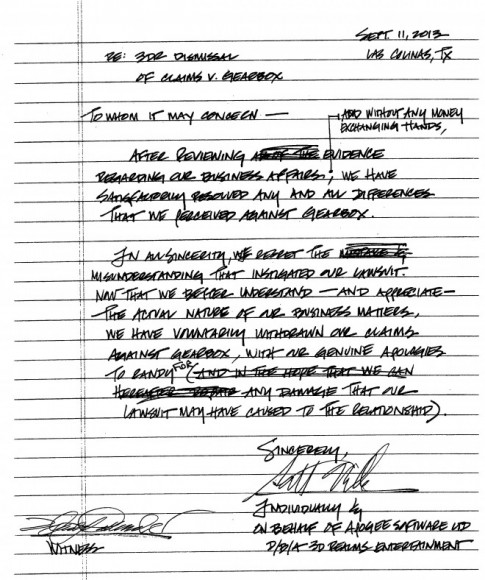 SEPT. 11, 2013
LAS COLINAS, TX
RE: 3DR DISMISSAL
OF CLAIMS V. GEARBOX
TO WHOM IT MAY CONCERN —
AND WITHOUT ANY MONEY
EXCHANGING HANDS,
AFTER REVIEWING THE EVIDENCE
REGARDING OUR BUSINESS AFFAIRS; WE HAVE
SATISFACTORILY RESOLVED ANY AND ALL DIFFERENCES
THAT WE PERCEIVED AGAINST GEARBOX.
IN ALL SINCERITY, WE REGRET THE
MISUNDERSTANDING THAT INSTIGATED OUR LAWSUIT.
NOW THAT WE BETTER UNDERSTAND — AND APPRECIATE —
THE ACTUAL NATURE OF OUR BUSINESS MATTERS,
WE HAVE VOLUNTARILY WITHDRAWN OUR CLAIMS
AGAINST GEARBOX, WITH OUR GENUINE APOLOGIES
TO RANDY FOR (AND IN THE HOPE THAT WE CAN
ANY DAMAGE THAT OUR
LAWSUIT MAY HAVE CAUSED TO THE RELATIONSHIP).
SINCERELY,
INDIVIDUALLY &
ON BEHALF OF APOGEE SOFTWARE LTD
WITNESS
D/B/A 3D REALMS ENTERTAINMENT